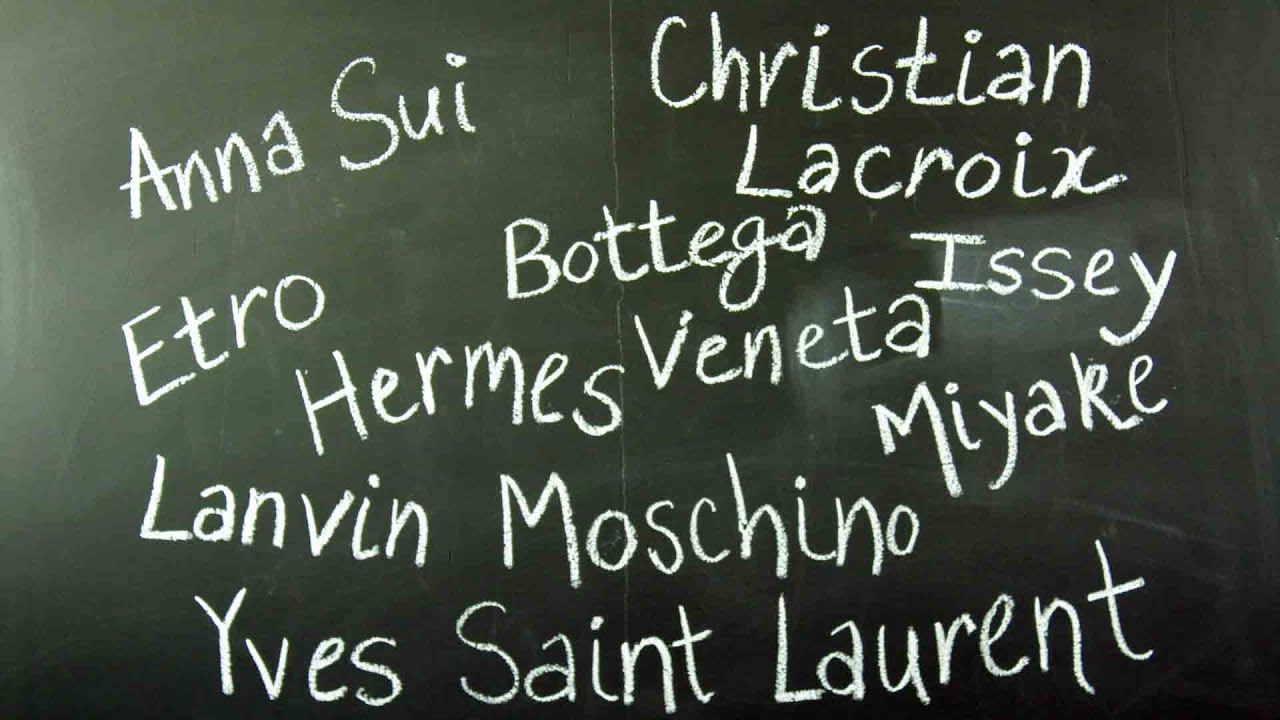 Anna Sui
Christian
Lacroix
Bottega
Veneta
Issey
Miyake
Etro
Hermes
Lanvin
Moschino
Yves Saint Laurent